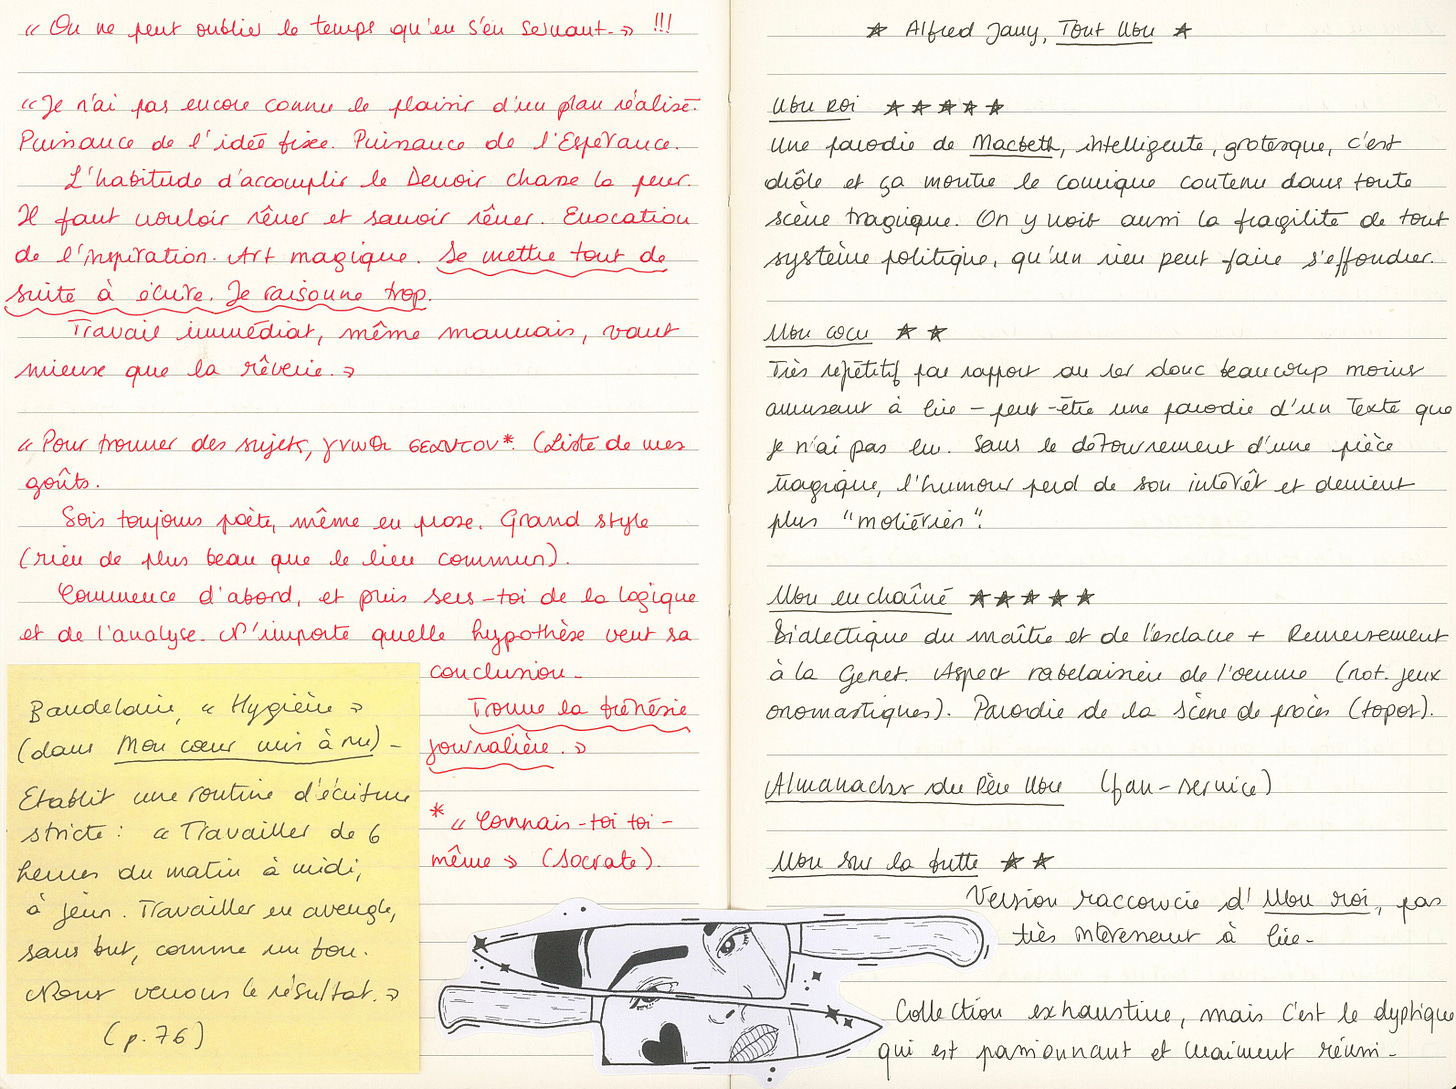 « On ne peut oublier le temps qu'en s'en servant. » !!!
« Je n'ai pas encore connu le plaisir d'un plan réalisé.
Puissance de l'idée fixe. Puissance de l'Espérance.
L'habitude d'accomplir le Devoir chasse la peur.
Il faut vouloir rêver et savoir rêver. Evocation
de l'inspiration. Art magique. Se mettre tout de
suite à écrire. Je raisonne trop.
Travail immédiat, même mauvais, vaut
mieux que la rêverie. »
« Pour trouver des sujets, γνωθι σεαυτον*. (Liste de mes
goûts.
Sois toujours poète, même en prose. Grand style
(rien de plus beau que le lieu commun).
Commence d'abord, et puis sers-toi de la logique
et de l'analyse. N'importe quelle hypothèse veut sa
conclusion.
Trouve la frénésie
journalière. »
* « Connais-toi toi-
même » (Socrate).
Baudelaire, « Hygiène »
(dans Mon cœur mis à nu) -
Etablit une routine d'écriture
stricte : « Travailler de 6
heures du matin à midi,
à jeun. Travailler en aveugle,
sans but, comme un fou.
Nous verrons le résultat. »
(p.76)
★ Alfred Jarry, Tout Ubu ★
Ubu roi ★★★★★
Une parodie de Macbeth, intelligente, grotesque, c'est
drôle et ça montre le comique contenu dans toute
scène tragique. On y voit aussi la fragilité de tout
système politique, qu'un rien peut faire s'effondrer.
Ubu cocu ★★
Très répétitif par rapport au 1er donc beaucoup moins
amusant à lire - peut-être une parodie d'un texte que
je n'ai pas lu. Sans le détournement d'une pièce
tragique, l'humour perd de son intérêt et devient
plus "moliérien".
Ubu enchaîné ★★★★★
Dialectique du maître et de l'esclave + Renversement
à la Genet. Aspect rabelaisien de l'oeuvre (not. jeux
onomastiques). Parodie de la scène de procès (topos).
Almanachs du Père Ubu (fan-service)
Ubu sur la butte ★★
Version raccourcie d'Ubu roi, pas
très intéressant à lire.
Collection exhaustive, mais c'est le dyptique
qui est passionnant et vraiment réussi.